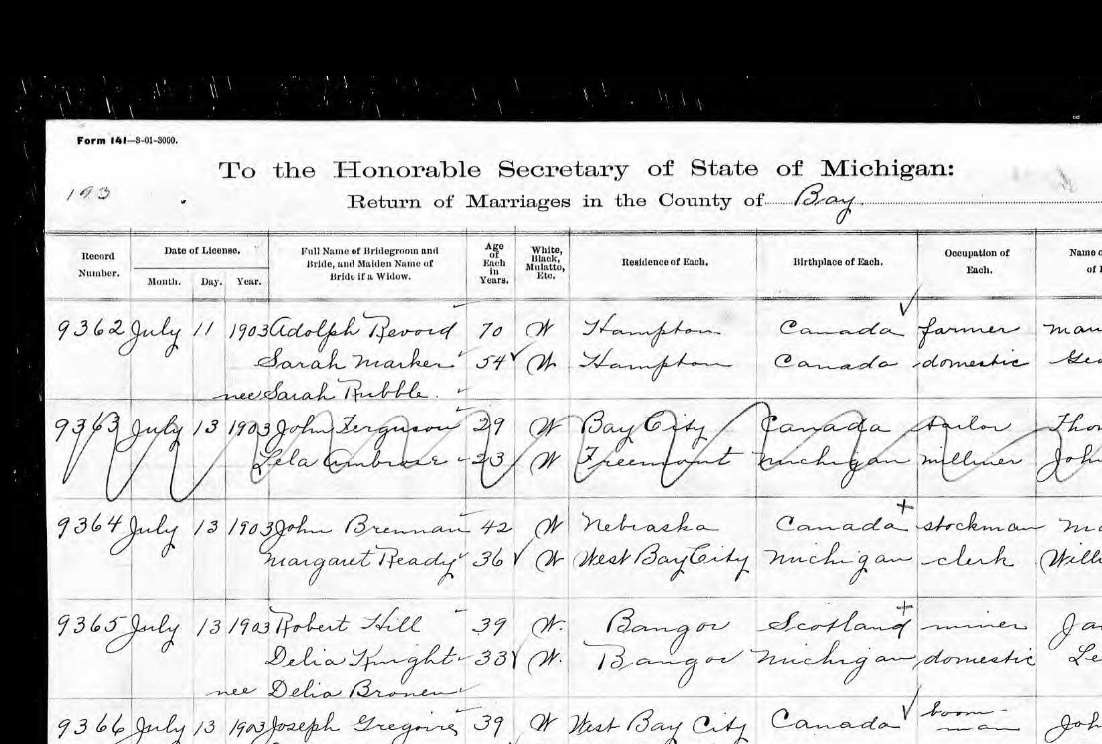 Form 141—8-01-3000.
To the Honorable Secretary of State of Michigan:
193
Return of Marriages in the County of Bay
Record Number. Date of License. Month. Day. Year. Full Name of Bridegroom and Bride, and Maiden Name of Bride if a Widow. Age of Each in Years. White, Black, Mulatto, Etc. Residence of Each. Birthplace of Each. Occupation of Each. Name o
of F
9362 July 11 1903 Adolph Revord 70 W Hampton Canada farmer
Sarah Marker 54 W Hampton Canada domestic
nee Sarah Rubble.
9363 July 13 1903 John Ferguson 29 W Bay City Canada tailor Tho
Lela Ambrose 23 W Freemount Michigan milliner John
9364 July 13 1903 John Brennan 42 W Nebraska Canada stockman
Margaret Ready 36 W West Bay City Michigan clerk Will
9365 July 13 1903 Robert Hill 39 W. Bangor Scotland miner Ja
Delia Knight 33 W. Bangor Michigan domestic Le
nee Delia Bronen
9366 July 13 1903 Joseph Gregoire 39 W West Bay City Canada boom-man Joh